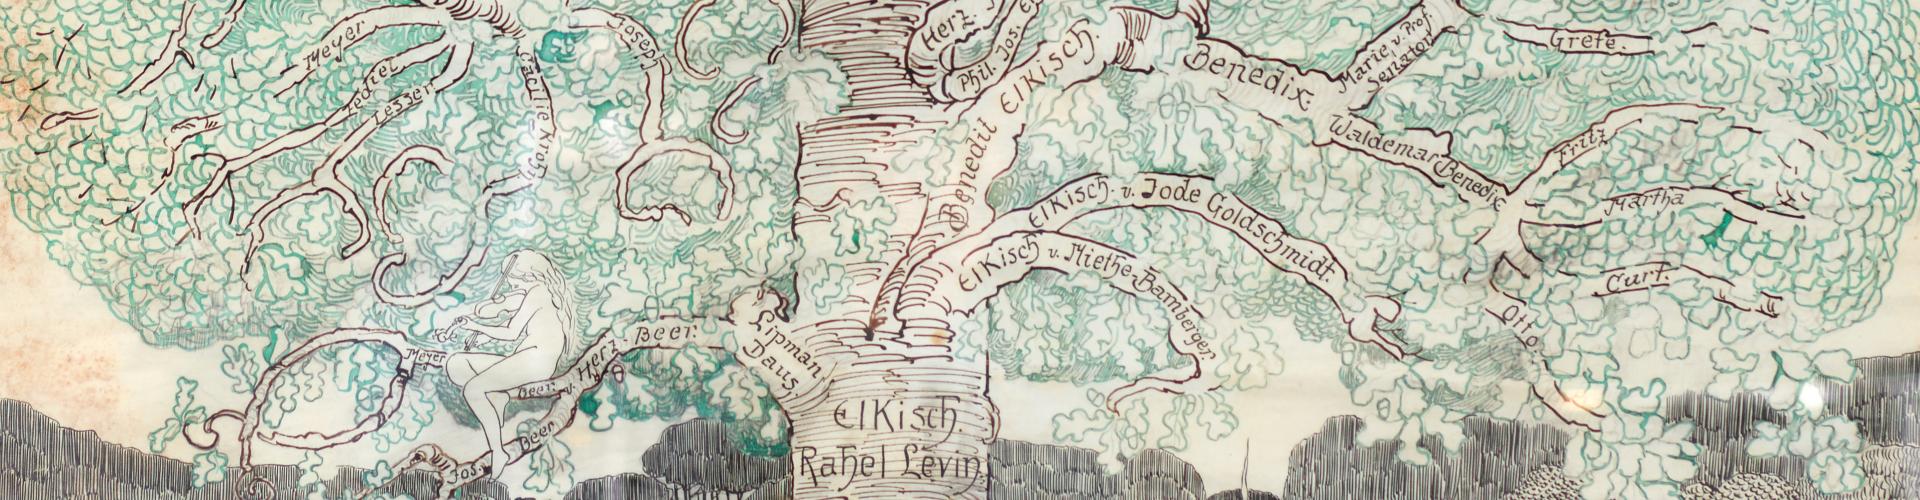 Meyer
Lediel
Lesser
Caecilie Kroh
Joseph
Herz J
Phil. Jos. E
Benedit Elkisch.
Benedix.
Marie v. Prof. Senator
Grete.
Waldemar Benedix
Fritz
Martha
Curt.
Otto.
Elkisch. v. Jode Goldschmidt.
Elkisch v. Miethe-Bamberger
Lipman
Daus.
Herz-Beer.
Beer v.
Beer
Meyer
Jos.
Elkisch.
Rahel Levin